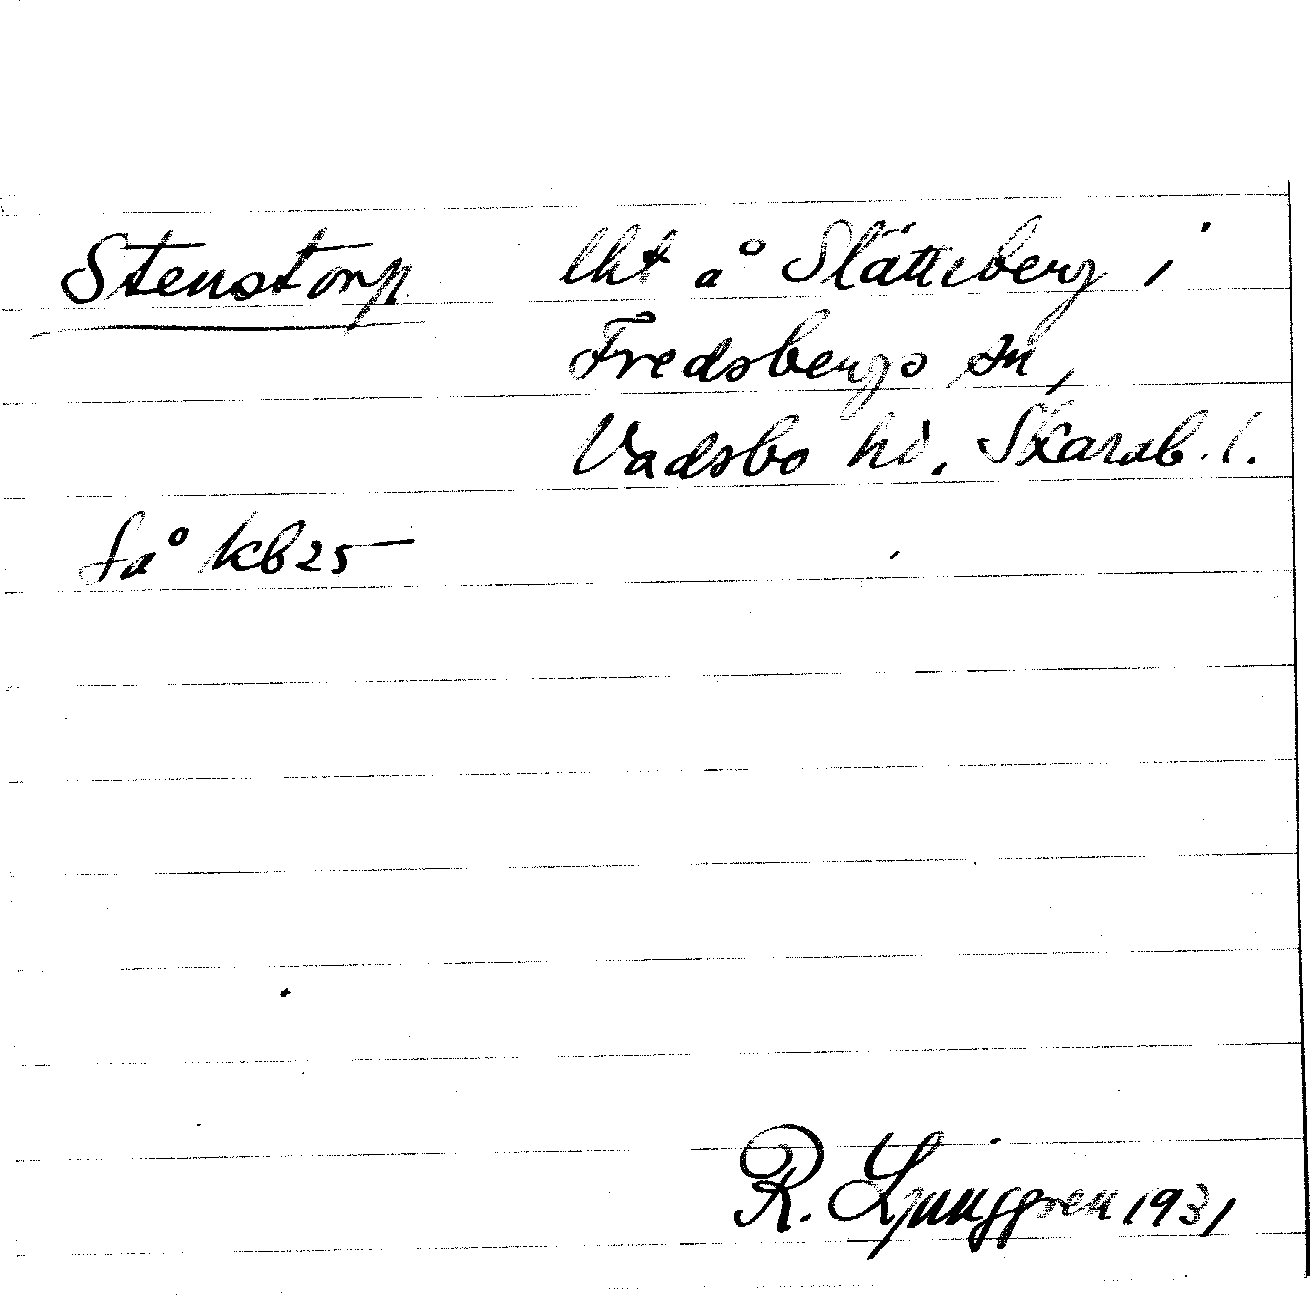 Stenstorp lht å Slätteberg i
Fredsbergs sn,
Vadsbo hd. Skarab. l.
så kb 25
R. Ljunggren 1931